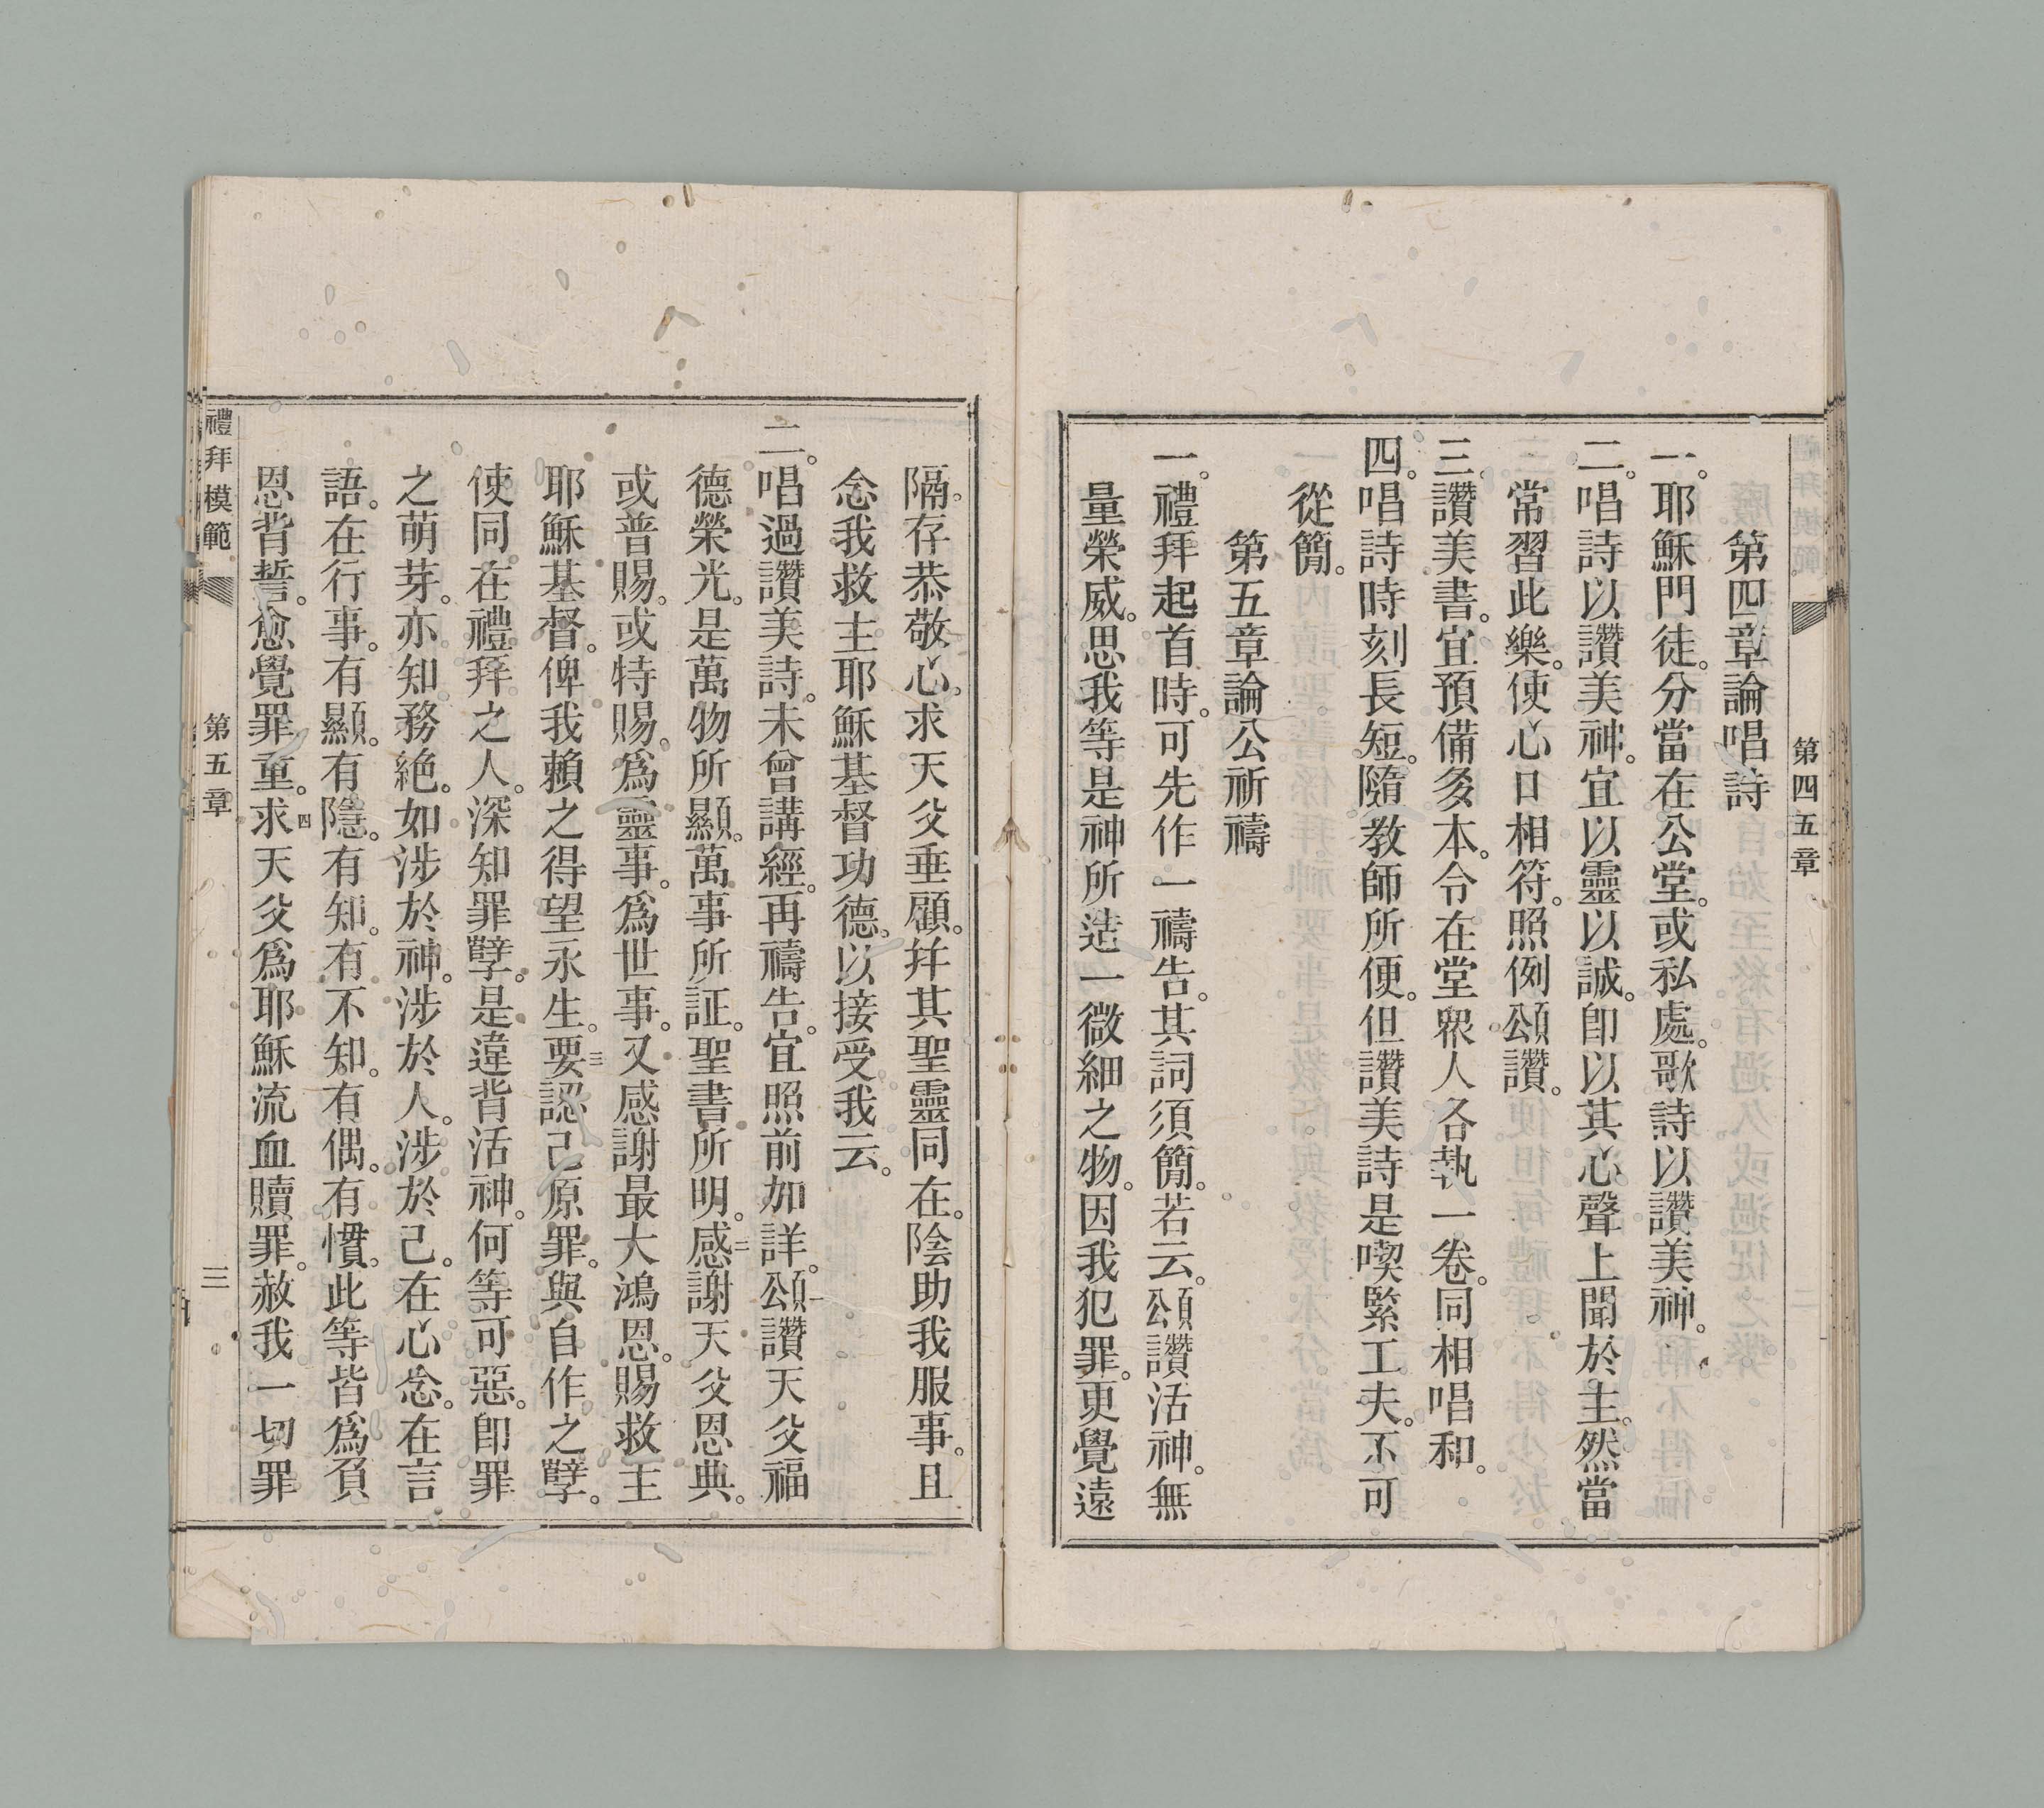 第四五章
第四章論唱詩
一。耶穌門徒。分當在公堂。或私處。歌詩以讚美神。
二。唱詩以讚美神。宜以靈以誠。卽以其心聲上聞於主。然當
常習此樂。使心口相符。照例頌讚。
三。讚美書。宜預備多本。令在堂衆人各執一卷。同相唱和。
四。唱詩時刻長短。隨教師所便。但讚美詩是喫緊工夫。不可
從簡。
第五章論公祈禱
一。禮拜起首時。可先作一禱告。其詞須簡。若云。頌讚活神。無
量榮威。思我等是神所造一微細之物。因我犯罪。更覺遠
隔。存恭敬心。求天父垂顧。幷其聖靈同在。陰助我服事。且
念我救主耶穌基督功德。以接受我云。
二。唱過讚美詩。未曾講經。再禱告。宜照前加詳。一頌讚天父福
德榮光。是萬物所顯。萬事所証。聖書所明。二感謝天父恩典。
或普賜。或特賜。爲靈事。爲世事。又感謝最大鴻恩。賜救主
耶穌基督。俾我賴之得望永生。三要認己原罪。與自作之孽。
使同在禮拜之人。深知罪孽。是違背活神。何等可惡。卽罪
之萌芽。亦知務絕。如涉於神。涉於人。涉於己。在心念。在言
語。在行事。有顯。有隱。有知。有不知。有偶。有慣。此等皆爲負
恩背誓。愈覺罪重。四求天父爲耶穌流血贖罪。赦我一切罪
禮拜模範 第五章 三